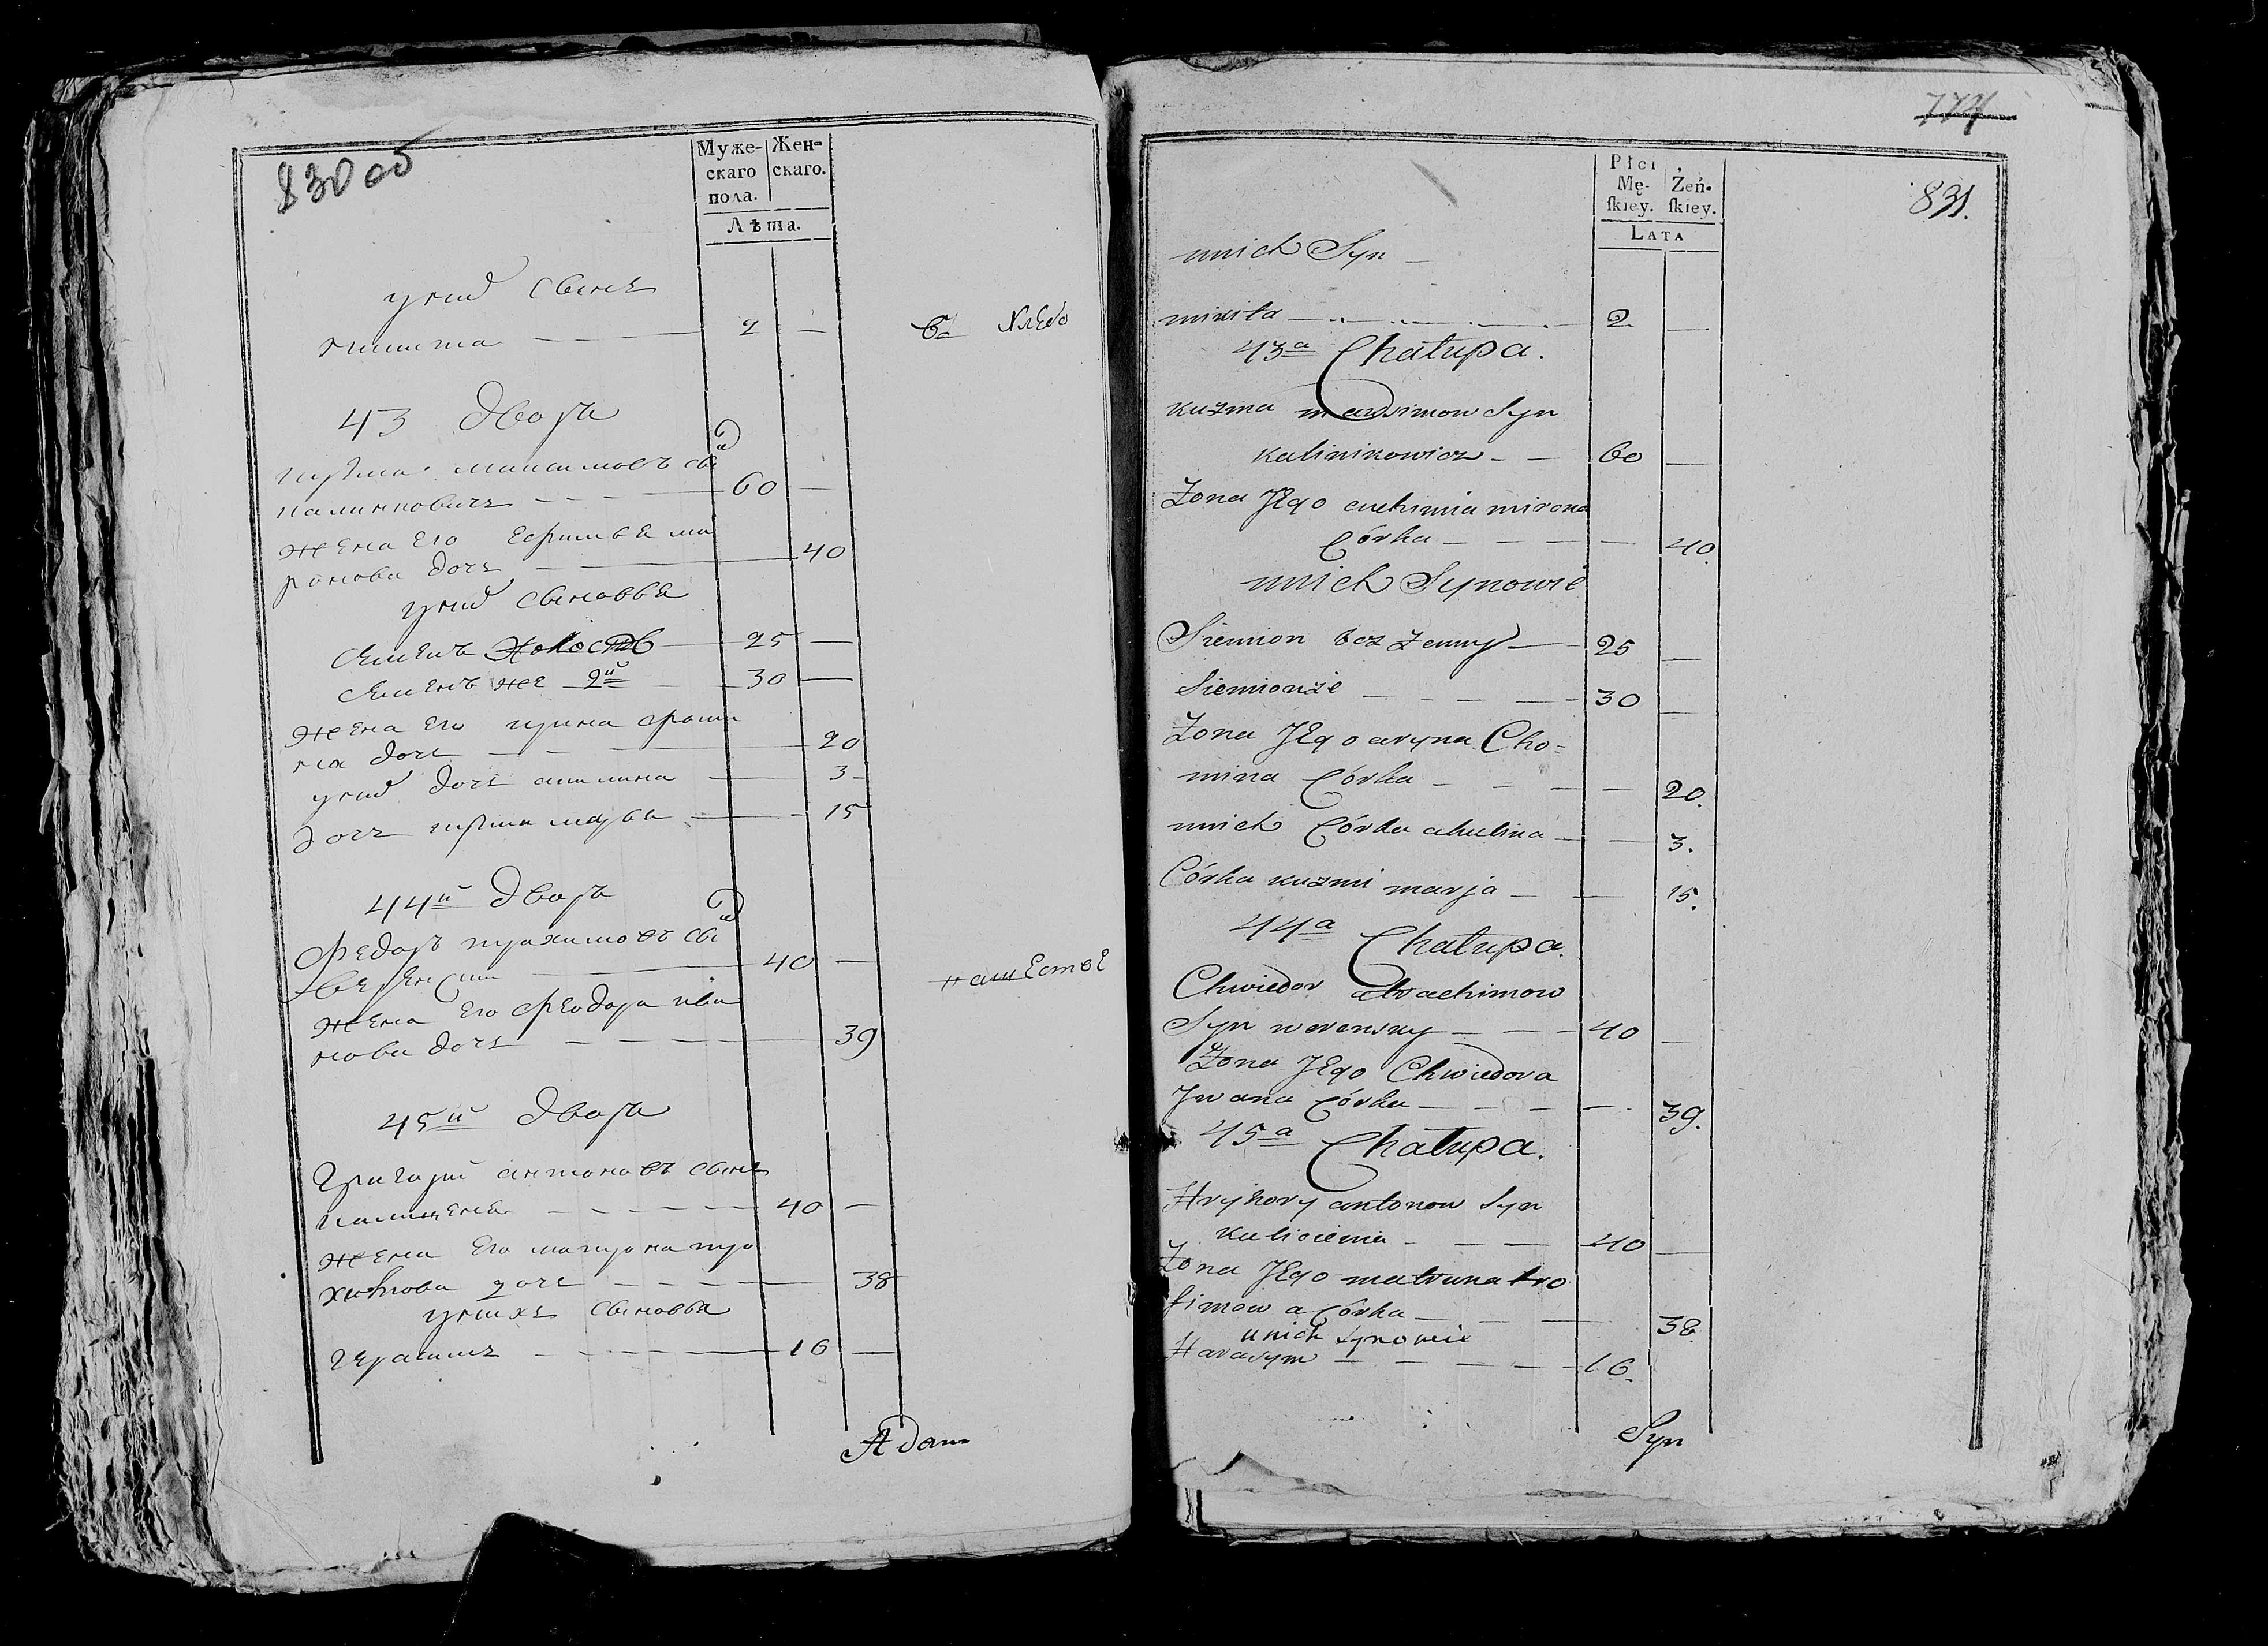 830 об
Муже-
скаго
пола.
Жен=
скаго.
Лѣта.
у нихъ сынъ
Никита 2 —
43 дворъ
Кузма Максимовъ сынъ
Калинковичъ 60 —
Жена его Ефимья Ми
ронова дочь 40
у нихъ сыновья
Семенъ холостъ 25 —
Семенъ же 2й 30 —
Жена его Ирина Фоми
на дочь 20
у нихъ дочь Акилина 3
дочь Кузмы Марья 15
44й дворъ
Федоръ Трахимовъ сынъ
40 —
Жена его Феодора Ива
нова дочь 39
45й дворъ
Григорий Антоновъ сынъ
40 —
Жена его Матрона Тро
химова дочь 38
у нихъ сыновья
Герасимъ 16 —
Adam
774
831.
Płci
Mę-
skiey.
Żeń-
skiey.
LATA
unich Syn —
mikita 2 —
43a Chałupa.
kuzma maxsimow Syn
kalinikowicz — — 60 —
Zona Jego euchimia mirona
Córka — — — — 40.
unich Synowie
Siemion bez zenny — 25 —
Siemionże — — — 30 —
Zona Jego aryna Cho=
mina Córka — — — 20.
unich Córka akulina — — 3.
Córka kuzmi marja — — 15.
44a Chałupa.
Chwiedor atrachimow
Syn werensky — — 40 —
Zona Jego Chwiedora
Jwana Córka — — — 39.
45a Chałupa.
Hryhory antonow Syn
kalicienia — — — 40 —
Zona Jego matruna tro
fimowa Córka — — 38
unich Synowie
Harasym — — — 16.
Syn